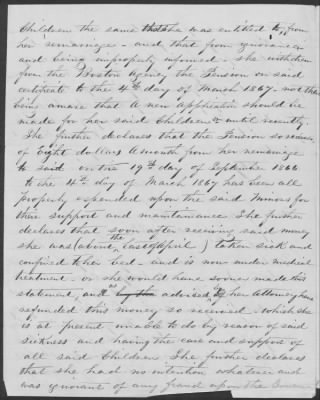 Children the same that she was entitled to, from
her remarriage - and that from ignorance
and being improperly informed - she withdrew
from the Boston Agency the Pension on said
certificate to the 4th day of March 1867. not then
being aware that a new application should be
made for her said Children until recently.
She further declares that the Pension so received
of Eight dollars a month from her remarriage
to said on the 19th day of September 1866
to the 4th day of March 1867 has been all
properly expended upon the said minors for
their support and maintainance She further
declares that soon after receiving said money
she was (about the last of April) taken sick and
confined to her bed - and is now under medical
treatment - or she would have sooner made this
statement, and as advised by her Attorney have
refunded this money so received - which she
is at present unable to do by reason of said
sickness and having the care and support of
all said Children She further declares
that she had no intention whatever and
was ignorant of any fraud upon the